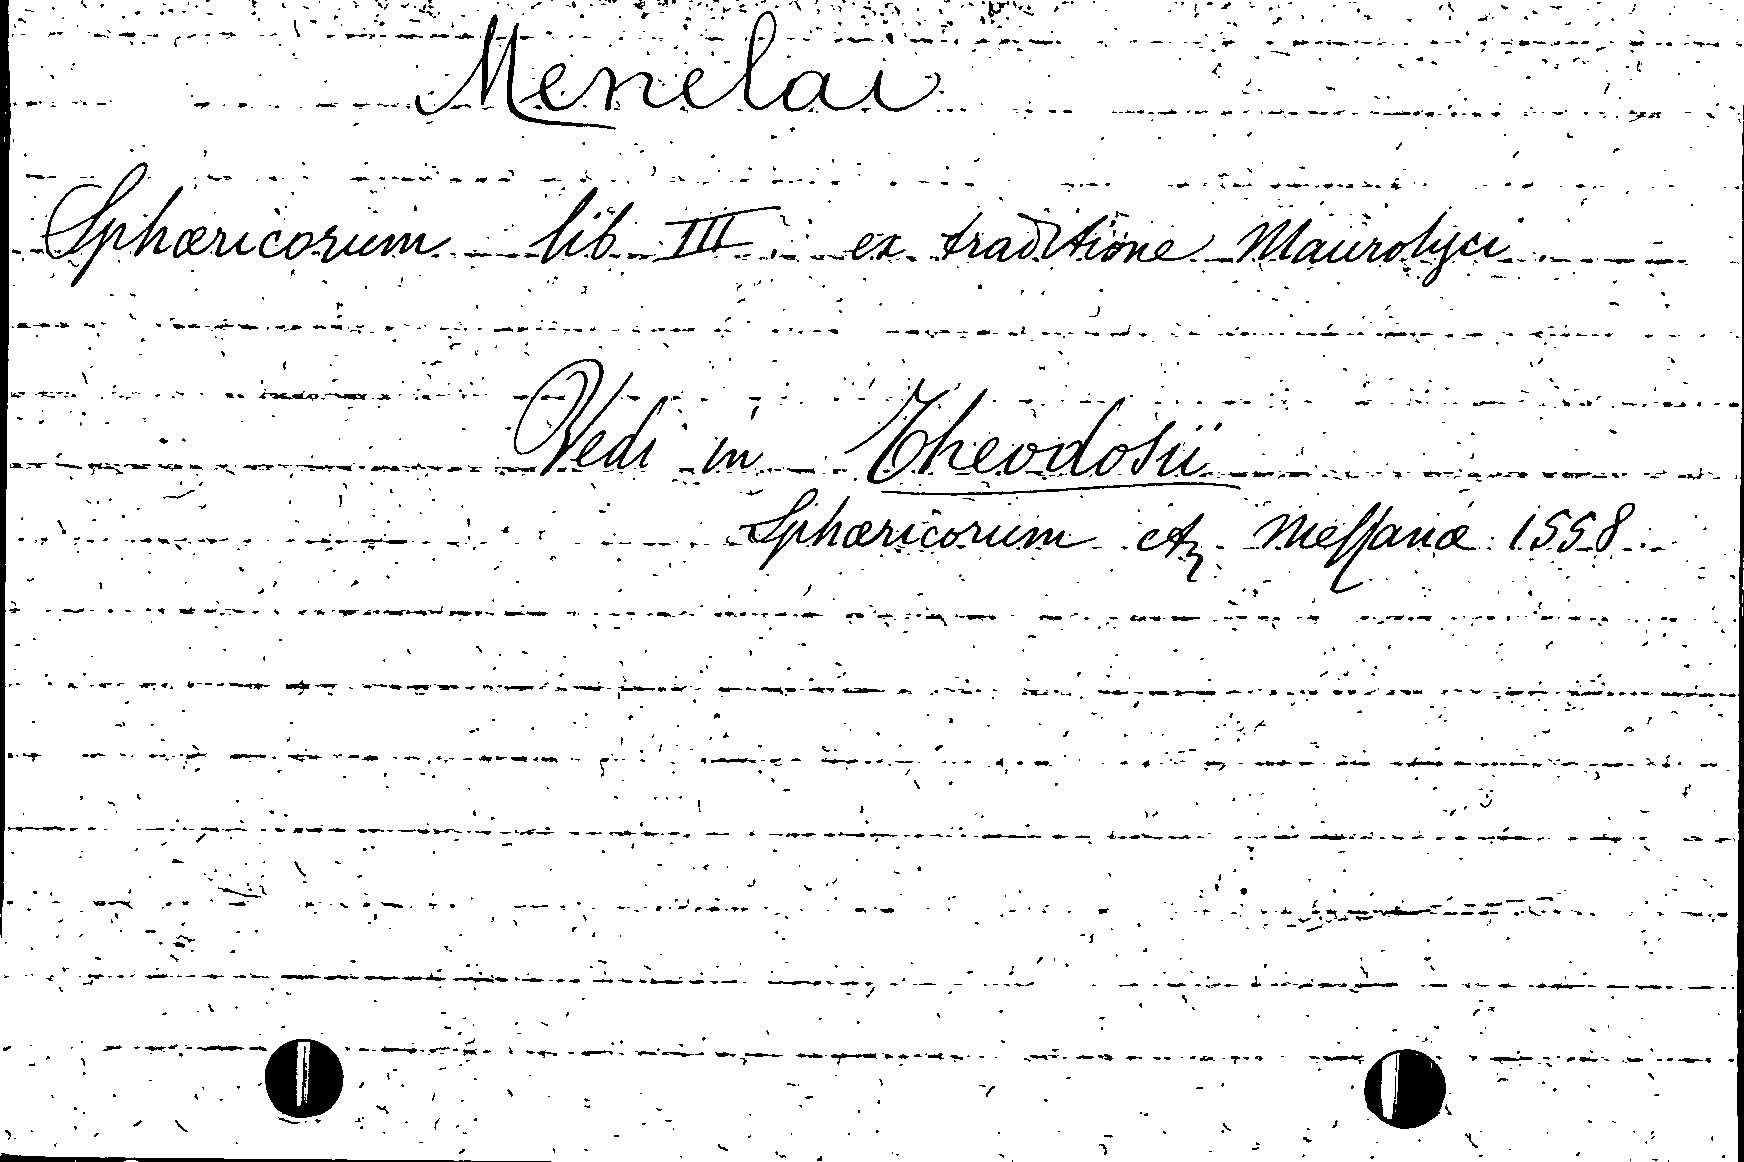 Menelai
Sphæricorum lib III ex traditione Maurolyci
Vedi in Theodosii
Sphæricorum etc. Messanæ 1558